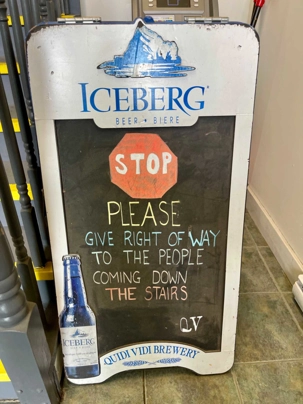 ICEBERG
BEER • BIERE
STOP
PLEASE
GIVE RIGHT OF WAY
TO THE PEOPLE
COMING DOWN
THE STAIRS
QV
ICEBERG
QUIDI VIDI BREWERY